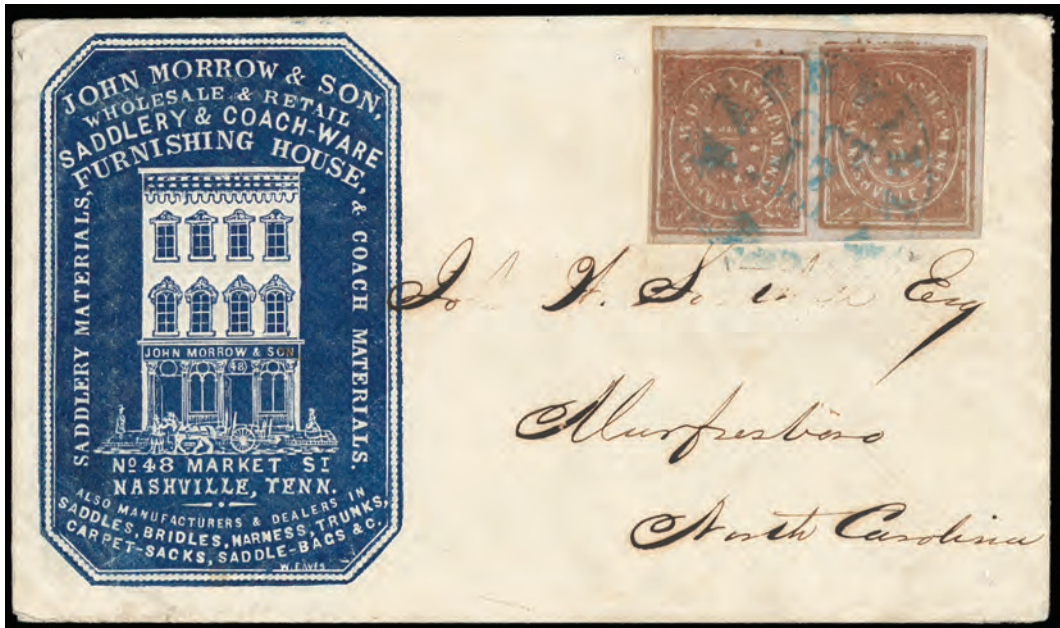 JOHN MORROW & SON,
WHOLESALE & RETAIL
SADDLERY & COACH-WARE
FURNISHING HOUSE,
SADDLERY MATERIALS,
& COACH MATERIALS.
JOHN MORROW & SON
48
Nº 48 MARKET ST
NASHVILLE, TENN.
ALSO MANUFACTURERS & DEALERS IN
SADDLES, BRIDLES, HARNESS, TRUNKS,
CARPET-SACKS, SADDLE-BAGS & C.
W. EAVES
NASHVILLE
NASHVILLE
H. Esq
Murfresboro
North Carolina